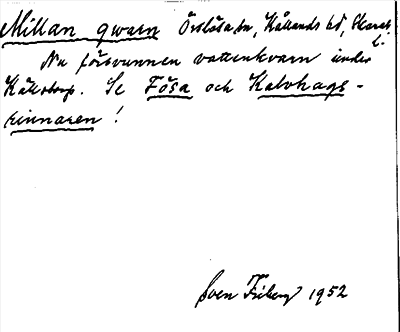 Millan qwarn Örslösa sn, Kållands hd, Skarab. l.
Nu försvunnen vattenkvarn under
Källstorp. Se Fösa och Kalvhags-
rinnaren!
Sven Friberg 1952